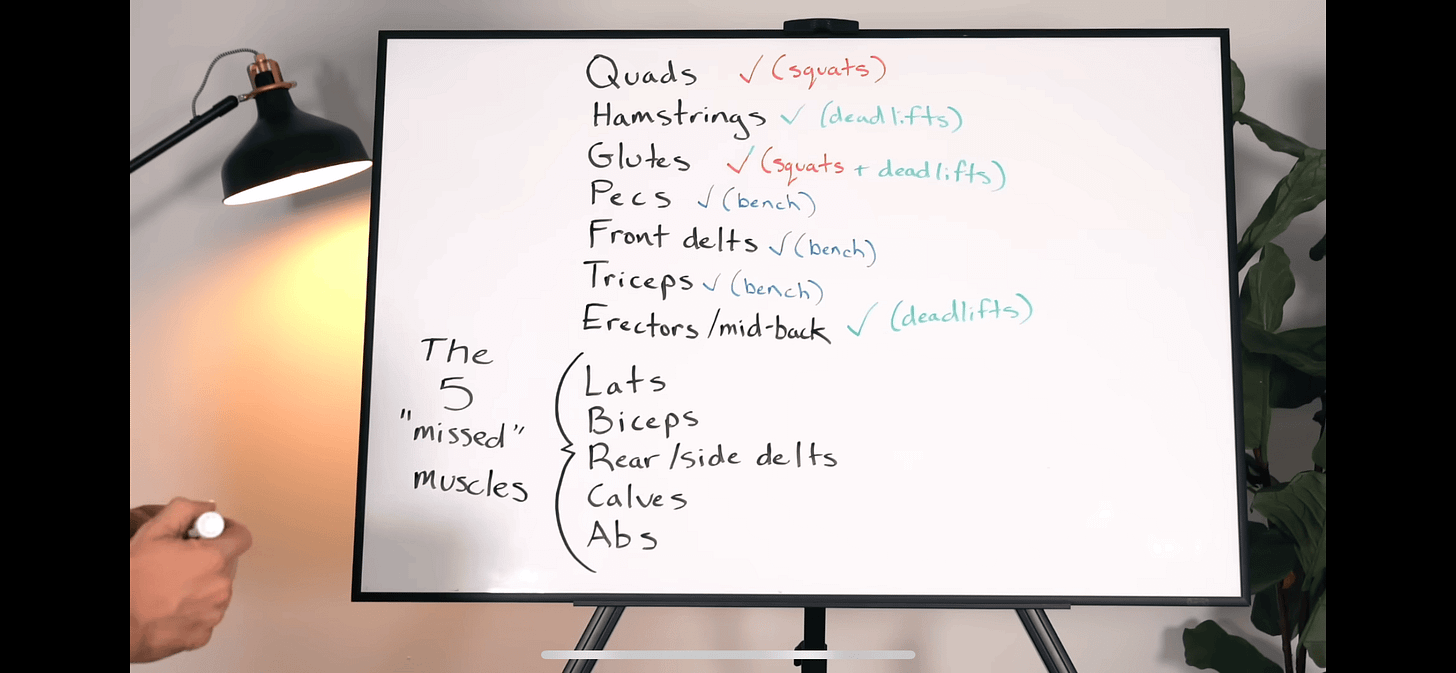 Quads ✓ (squats)
Hamstrings ✓ (deadlifts)
Glutes ✓ (squats + deadlifts)
Pecs ✓ (bench)
Front delts ✓ (bench)
Triceps ✓ (bench)
Erectors/mid-back ✓ (deadlifts)
The
5
"missed"
muscles
Lats
Biceps
Rear/side delts
Calves
Abs